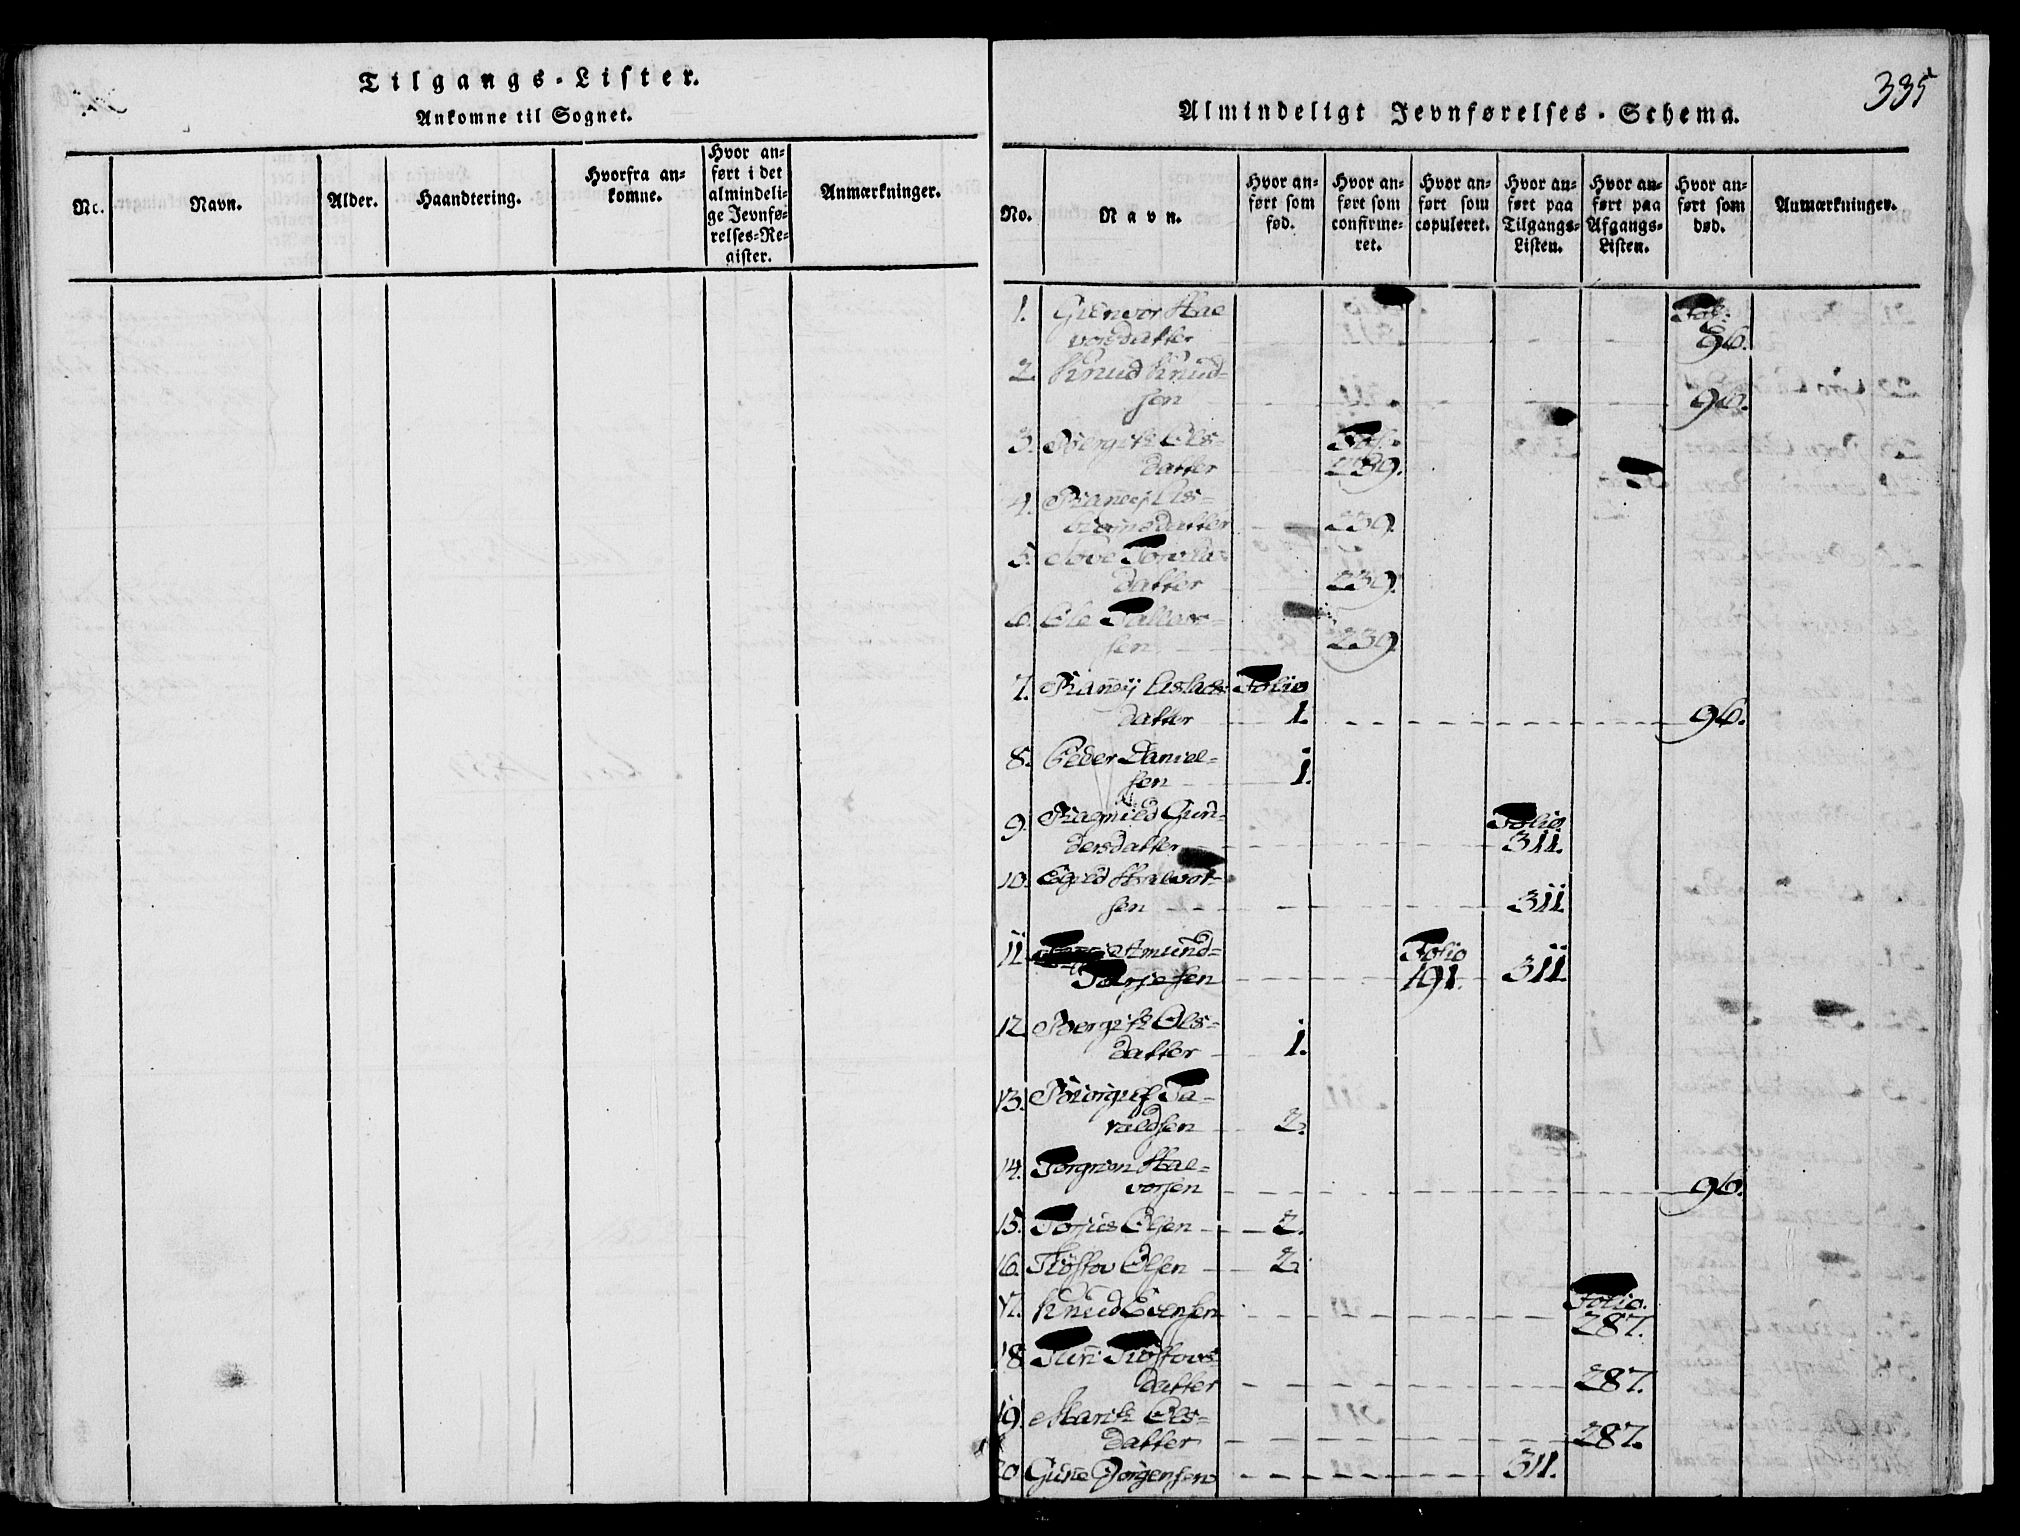 Tilgangs-Lister.
Ankomne til Sognet.
No. Navn. Alder. Haandtering. Hvorfra an-
komne. Hvor an-
ført i det
almindeli-
ge Jevnfø-
relses-Re-
gister. Anmærkninger.
335
Almindeligt Jevnførelses-Schema.
No. Navn. Hvor an-
ført som
fød. Hvor an-
ført som
confirme-
ret. Hvor an-
ført som
copuleret. Hvor an-
ført paa
Tilgangs-
Listen. Hvor an-
ført paa
Afgangs-
Listen. Hvor an-
ført som
død. Anmærkninger.
1. Gunvor Hal- Fol:
vorsdatter 96.
2. Knud Knud-
sen 96.
3. Bergit Ols- Fol:
datter 239.
4. Ranej As-
datter 239.
5. Tove
datter 239.
6. Ole Tallev-
sen 239.
7. Ranej Aslacs- Folio
datter 1. 96.
8. Peder Daniel-
sen 1.
9. Ragnild Gun- Folio
dersdatter 311.
10. Halvor-
sen 311.
11. Amund Folio
Terjesen 191. 311.
12. Bergit Ols-
datter 1.
13. Ta-
raldsen 2.
14. Torgrim Hal-
vorsen 96.
15. Torjus Olsen 2.
16. Tiøstov Olsen 2.
17. Knud Evensen Folio.
287.
18. Tiøstovs-
datter 287.
19. Marit Ols-
datter 287.
20. Gune Jørgensen 311.